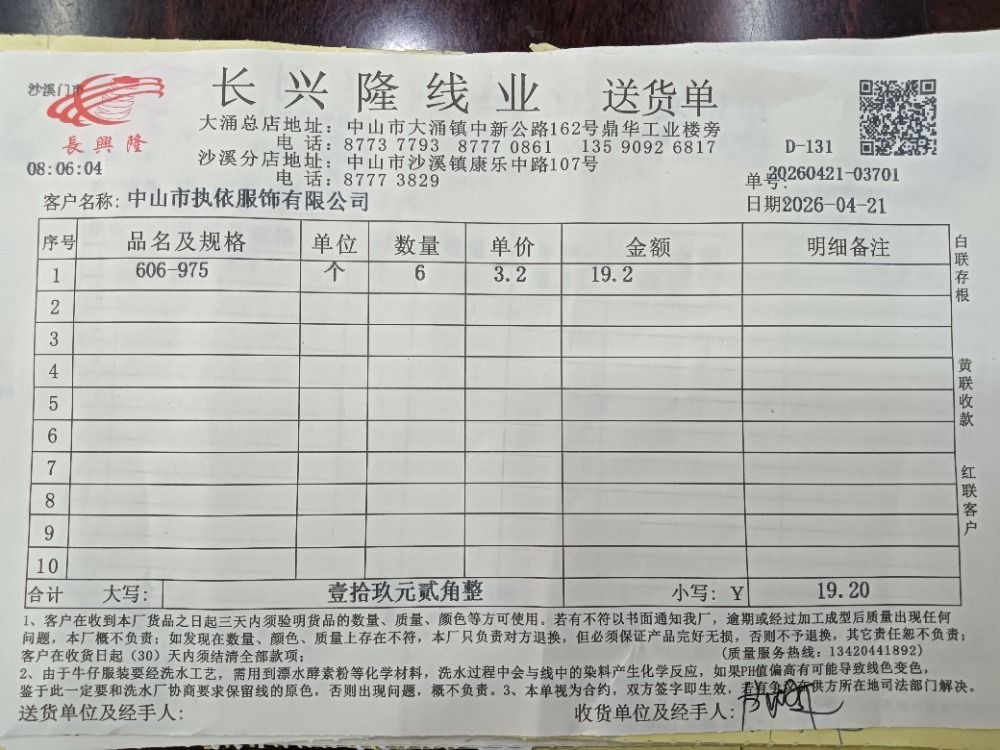 沙溪门市
長興隆
08:06:04
长兴隆线业 送货单
大涌总店地址：中山市大涌镇中新公路162号鼎华工业楼旁
电话：8773 7793 8777 0861 135 9092 6817
沙溪分店地址：中山市沙溪镇康乐中路107号
电话：8777 3829
D-131
单号：20260421-03701
客户名称：中山市执依服饰有限公司
日期2026-04-21
序号 品名及规格 单位 数量 单价 金额 明细备注
1 606-975 个 6 3.2 19.2
2
3
4
5
6
7
8
9
10
合计 大写：壹拾玖元贰角整 小写：Y 19.20
白联存根
黄联收款
红联客户
1、客户在收到本厂货品之日起三天内须验明货品的数量、质量、颜色等方可使用。若有不符以书面通知我厂，逾期或经过加工成型后质量出现任何
问题，本厂概不负责；如发现在数量、颜色、质量上存在不符，本厂只负责对方退换，但必须保证产品完好无损，否则不予退换，其它责任恕不负责；
客户在收货日起（30）天内须结清全部款项； （质量服务热线：13420441892）
2、由于牛仔服装要经洗水工艺，需用到漂水酵素粉等化学材料，洗水过程中会与线中的染料产生化学反应，如果PH值偏高有可能导致线色变色，
鉴于此一定要和洗水厂协商要求保留线的原色，否则出现问题，概不负责。3、本单视为合约，双方签字即生效，若有争议在供方所在地司法部门解决。
送货单位及经手人： 收货单位及经手人：